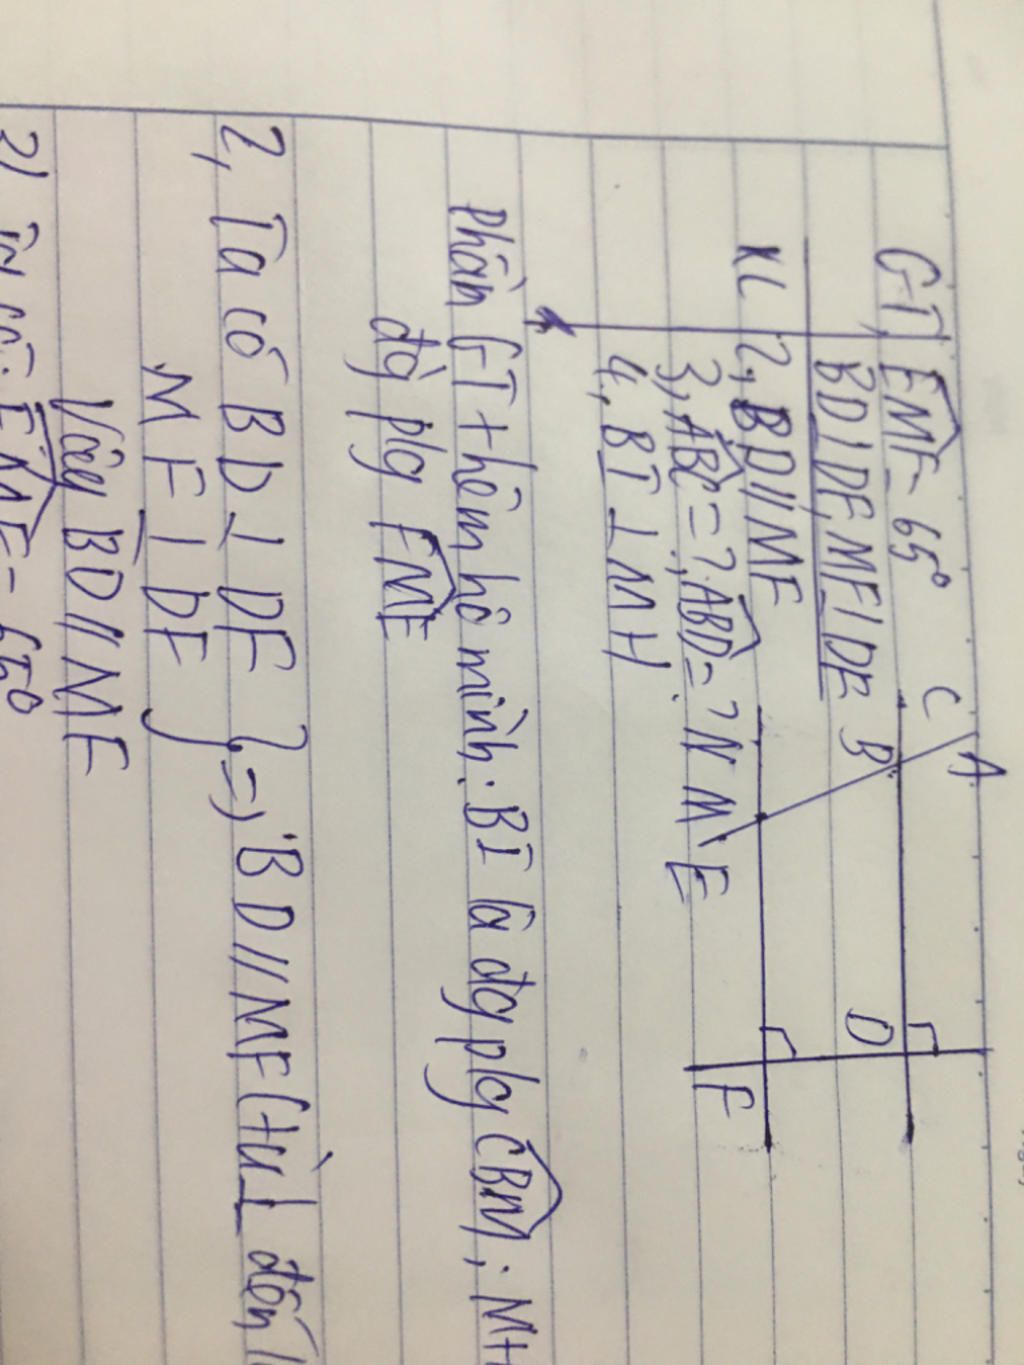 GT, EMF = 65°
BD⊥DF, MF⊥DF
KL 2, BD//MF
3, ABC = ?, ABD = ?
4, BI ⊥ MH
C
A
B
D
N
M
E
F
Phần GT thêm hộ mình: BI là đg plg CBM; MH
đg plg FME
2, Ta có BD ⊥ DF } => BD//MF (từ ⊥ đến
MF ⊥ DF
Vậy BD//MF
3, Ta có: EMF = 65°